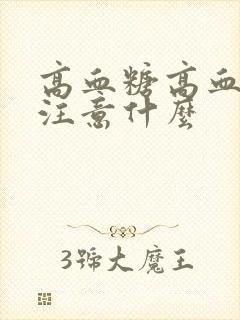 高血糖高血
注意什麼
3號大魔王